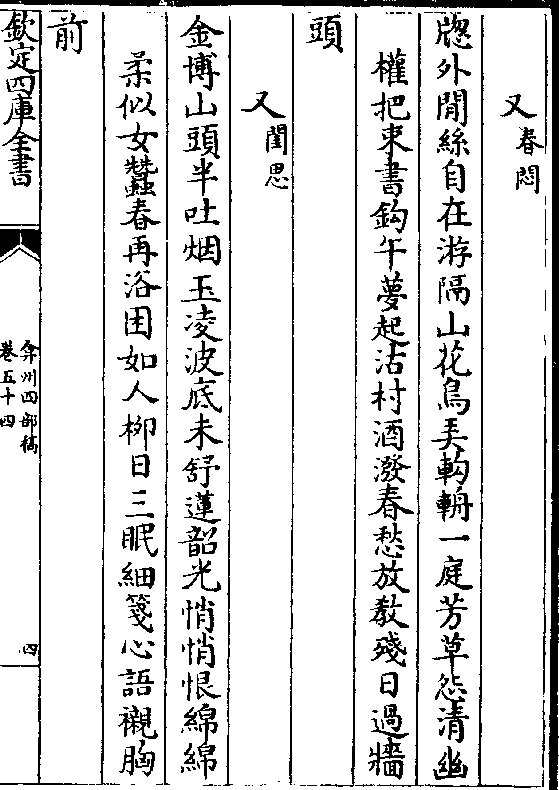 又春悶
牎外閒絲自在游隔山花鳥弄輈一庭芳草怨清幽
權把束書鈎午夢起沽村酒潑春愁放教殘日過牆
頭
又閨思
金博山頭半吐烟玉凌波底未舒蓮韶光悄悄恨綿綿
柔似女蠶春再浴困如人栁日三眠細箋心語襯胸
前
欽定四庫全書
弇州四部稿
卷五十四
四